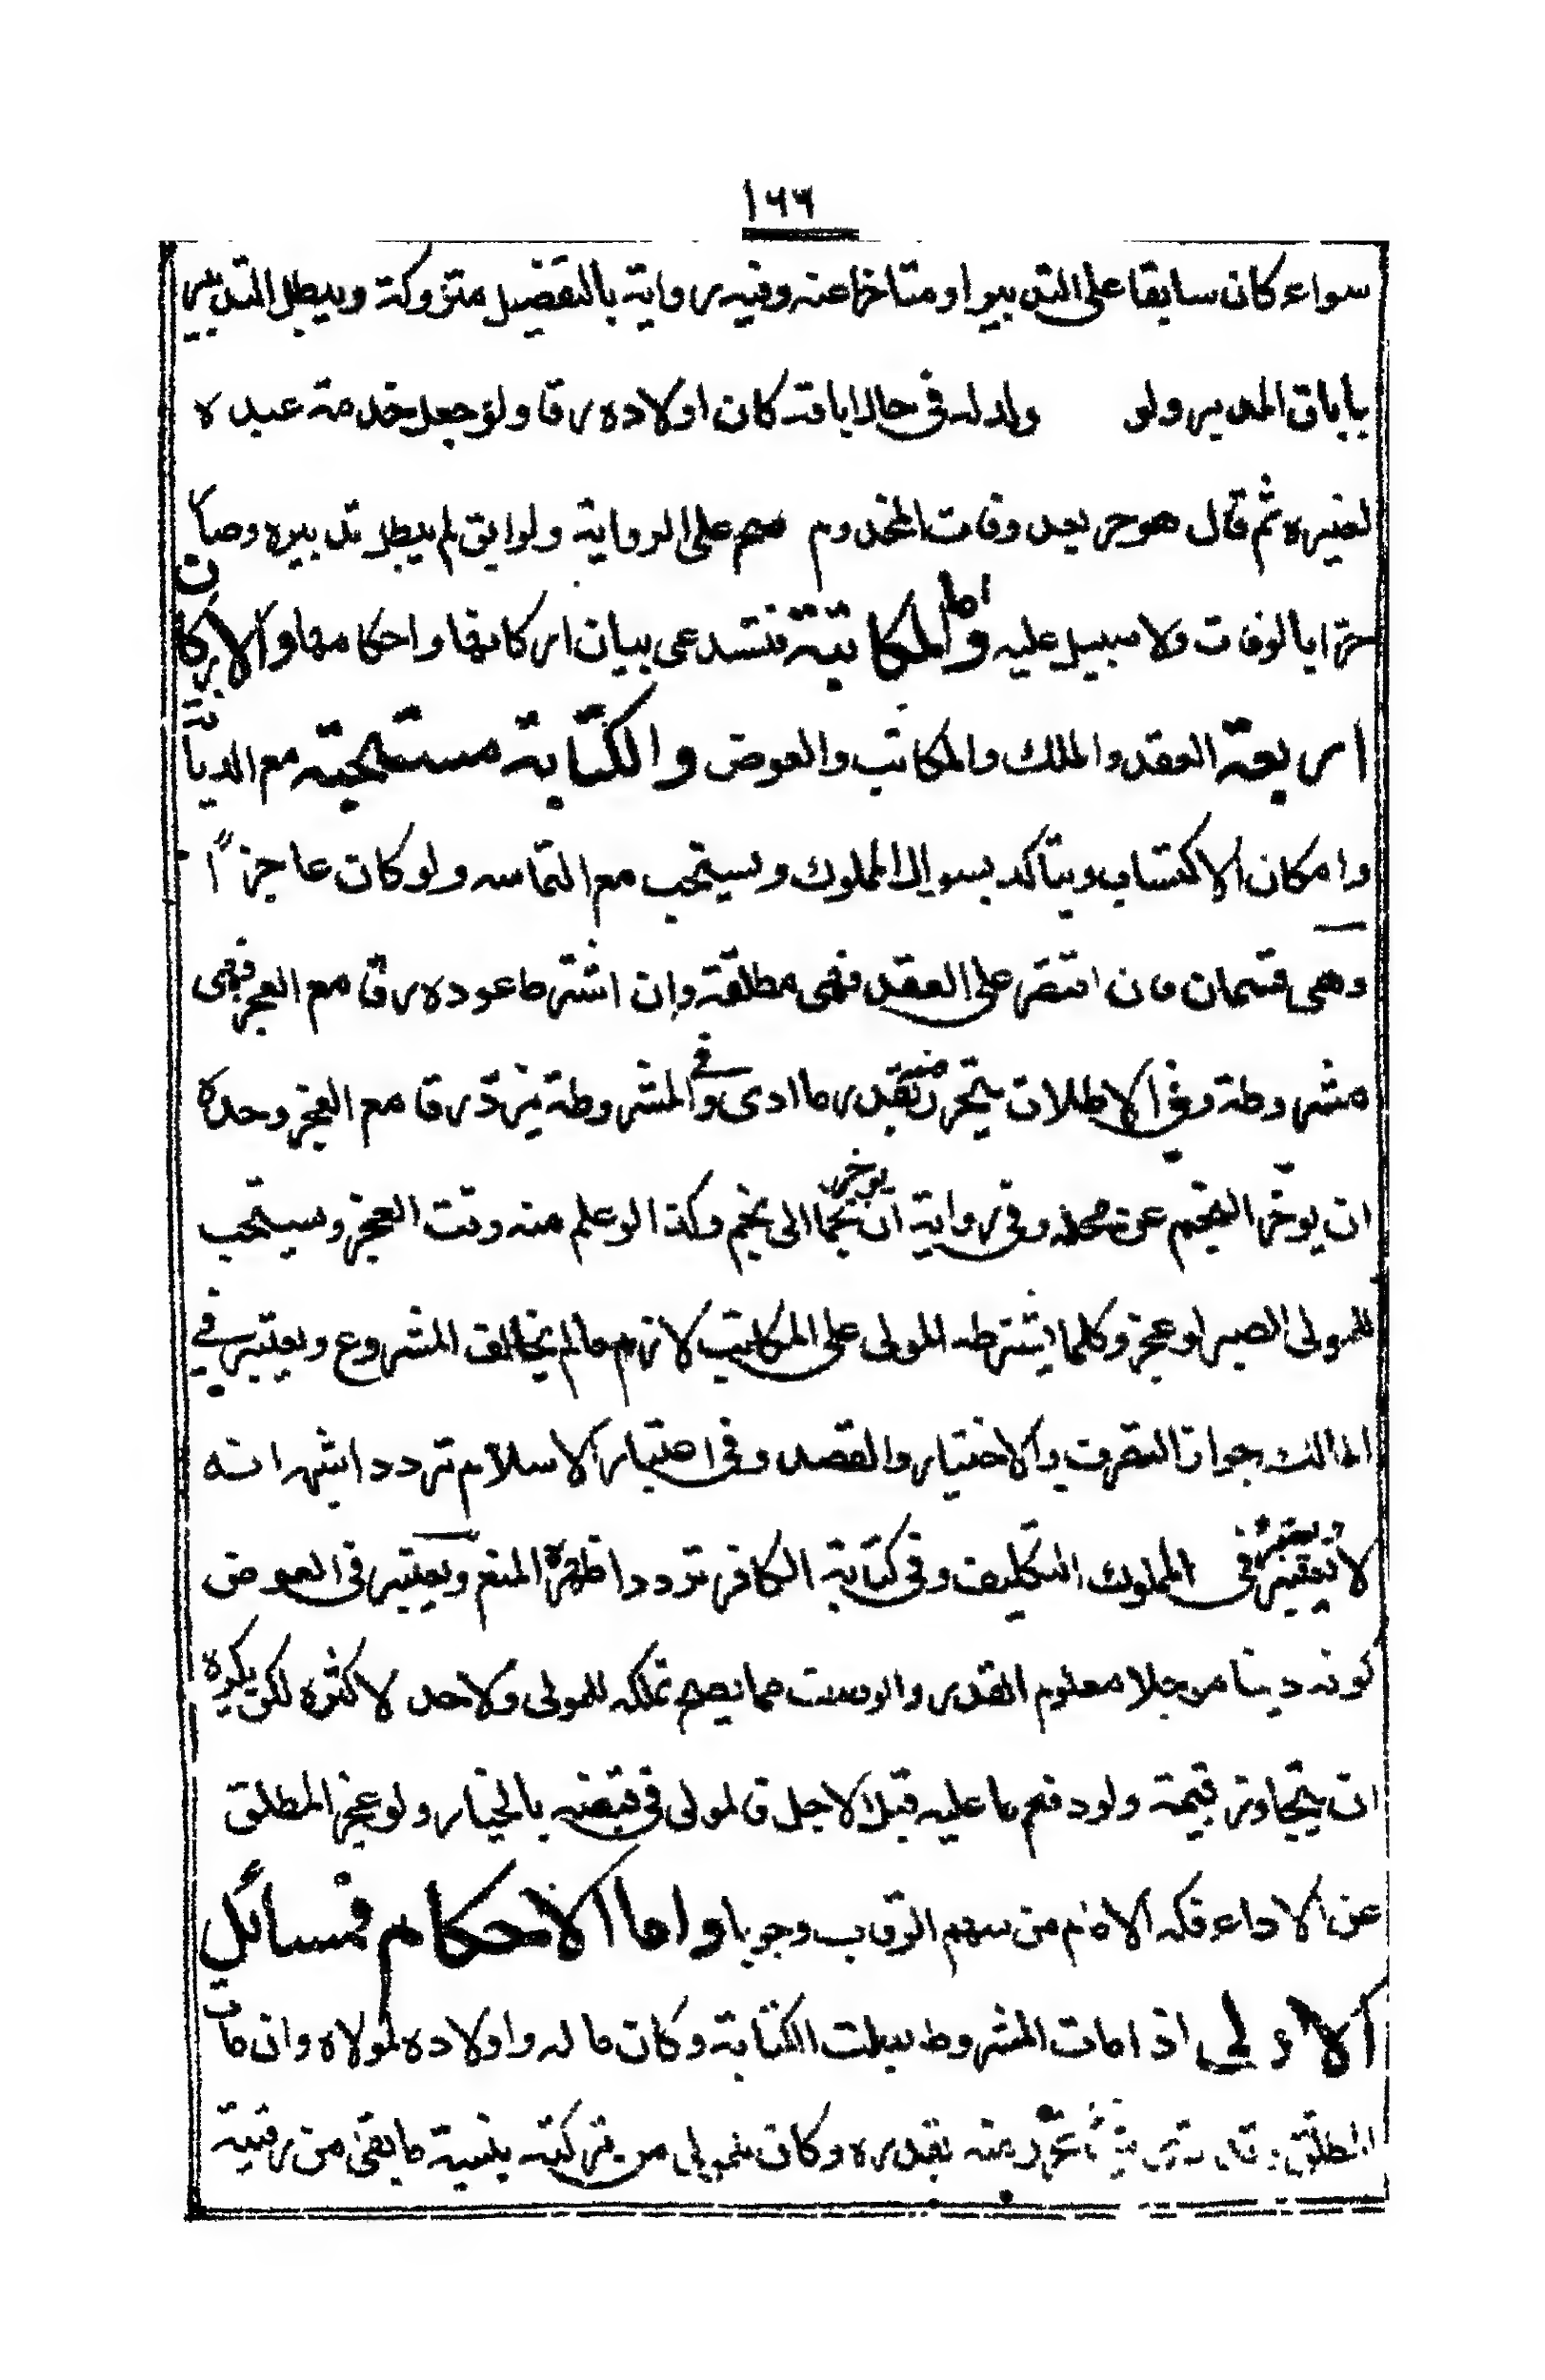 ١٦٦
سواء كان سابقا على التدبير او متاخرا عنه وفيه رواية بالتفضيل متروكة ويبطل التدبير
باباق المدبر ولو ولد له فى حال اباقه كان اولاده رقا ولو جعل خدمة عبده
لغيره ثم قال هو حر بعد وفات المخدوم صح على الرواية ولو ابق لم يبطل تدبيره وصار
حرا بالوفات ولا سبيل عليه واما المكاتبة فتستدعى بيان اركانها واحكامها والاركان
اربعة العقد والملك والمكاتب والعوض والكتابة مستحبة مع الديانة
وامكان الاكتساب ويتاكد بسوال المملوك ويستحب مع التماسه ولو كان عاجزًا
وهى قسمان فان اقتصر على العقد فهى مطلقة وان اشترط عوده رقا مع العجز فهى
مشروطة وفى الاطلاق يتحرر منه بقدر ما ادى وفى المشروطة يرد رقا مع العجز وحده
ان يوخر النجم عن محله وفى رواية ان يوخر نجما الى نجم وكذا لو علم منه وقت العجز ويستحب
للمولى الصبر لو عجز وكلما يشترطه المولى على المكاتب لازم مالم يخالف المشروع ويعتبر فى
المالك جواز التصرف والاختيار والقصد وفى اعتبار الاسلام تردد اشهر انه
لا يعتبر ويعتبر فى المملوك التكليف وفى كتابة الكافر تردد اظهره المنع ويعتبر فى العوض
كونه دينا موجلا معلوم القدر والوصف مما يصح تملكه للمولى ولاحد لاكثره لكن يكره
ان يتجاوز قيمة ولو دفع ما عليه قبل الاجل فالمولى فى قبضه بالخيار ولو عجز المطلق
عن الاداء فكه الامام من سهم الرقاب وجوبا واما الاحكام فمسائل
الاولى اذا مات المشروط بطلت الكتابة وكان ماله واولاده لمولاه وان مات
المطلق وقد ادى شيئا تحرر منه بقدره وكان للمولى من تركته بنسبة ما بقى من رقيته